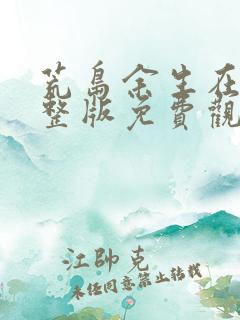 荒島余生在
整版免費觀
江帥克
未经同意禁止转载